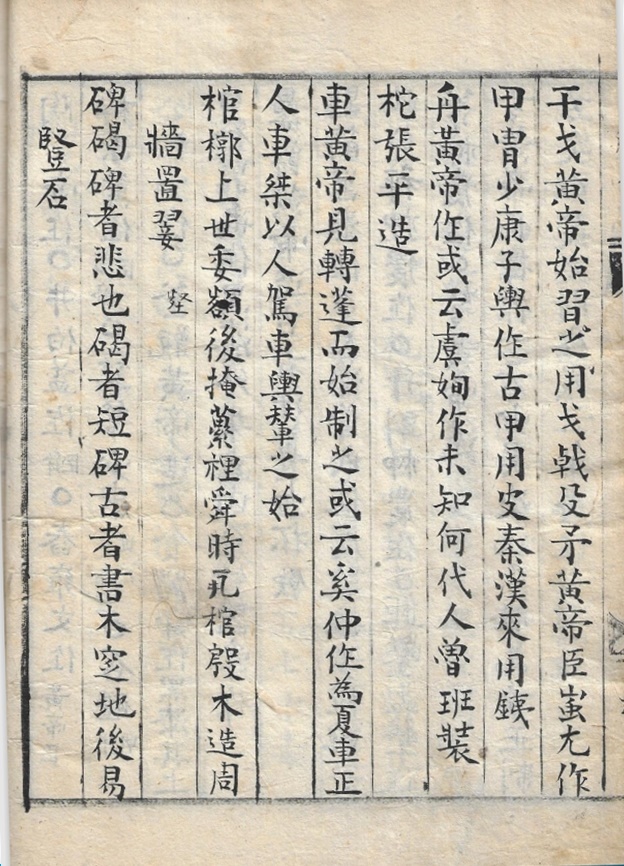 干戈黃帝始習之用戈戟殳矛黃帝臣蚩尤作
甲冑少康子輿作古甲用皮秦漢來用鐵
舟黃帝作或云虞姁作未知何代人魯班裝
柁張平造
車黃帝見轉蓬而始制之或云奚仲作為夏車正
人車桀以人駕車輿輦之始
棺槨上世委壑後掩虆裡舜時瓦棺殷木造周
墻置翣
碑碣碑者悲也碣者短碑古者書木窆地後易
豎石